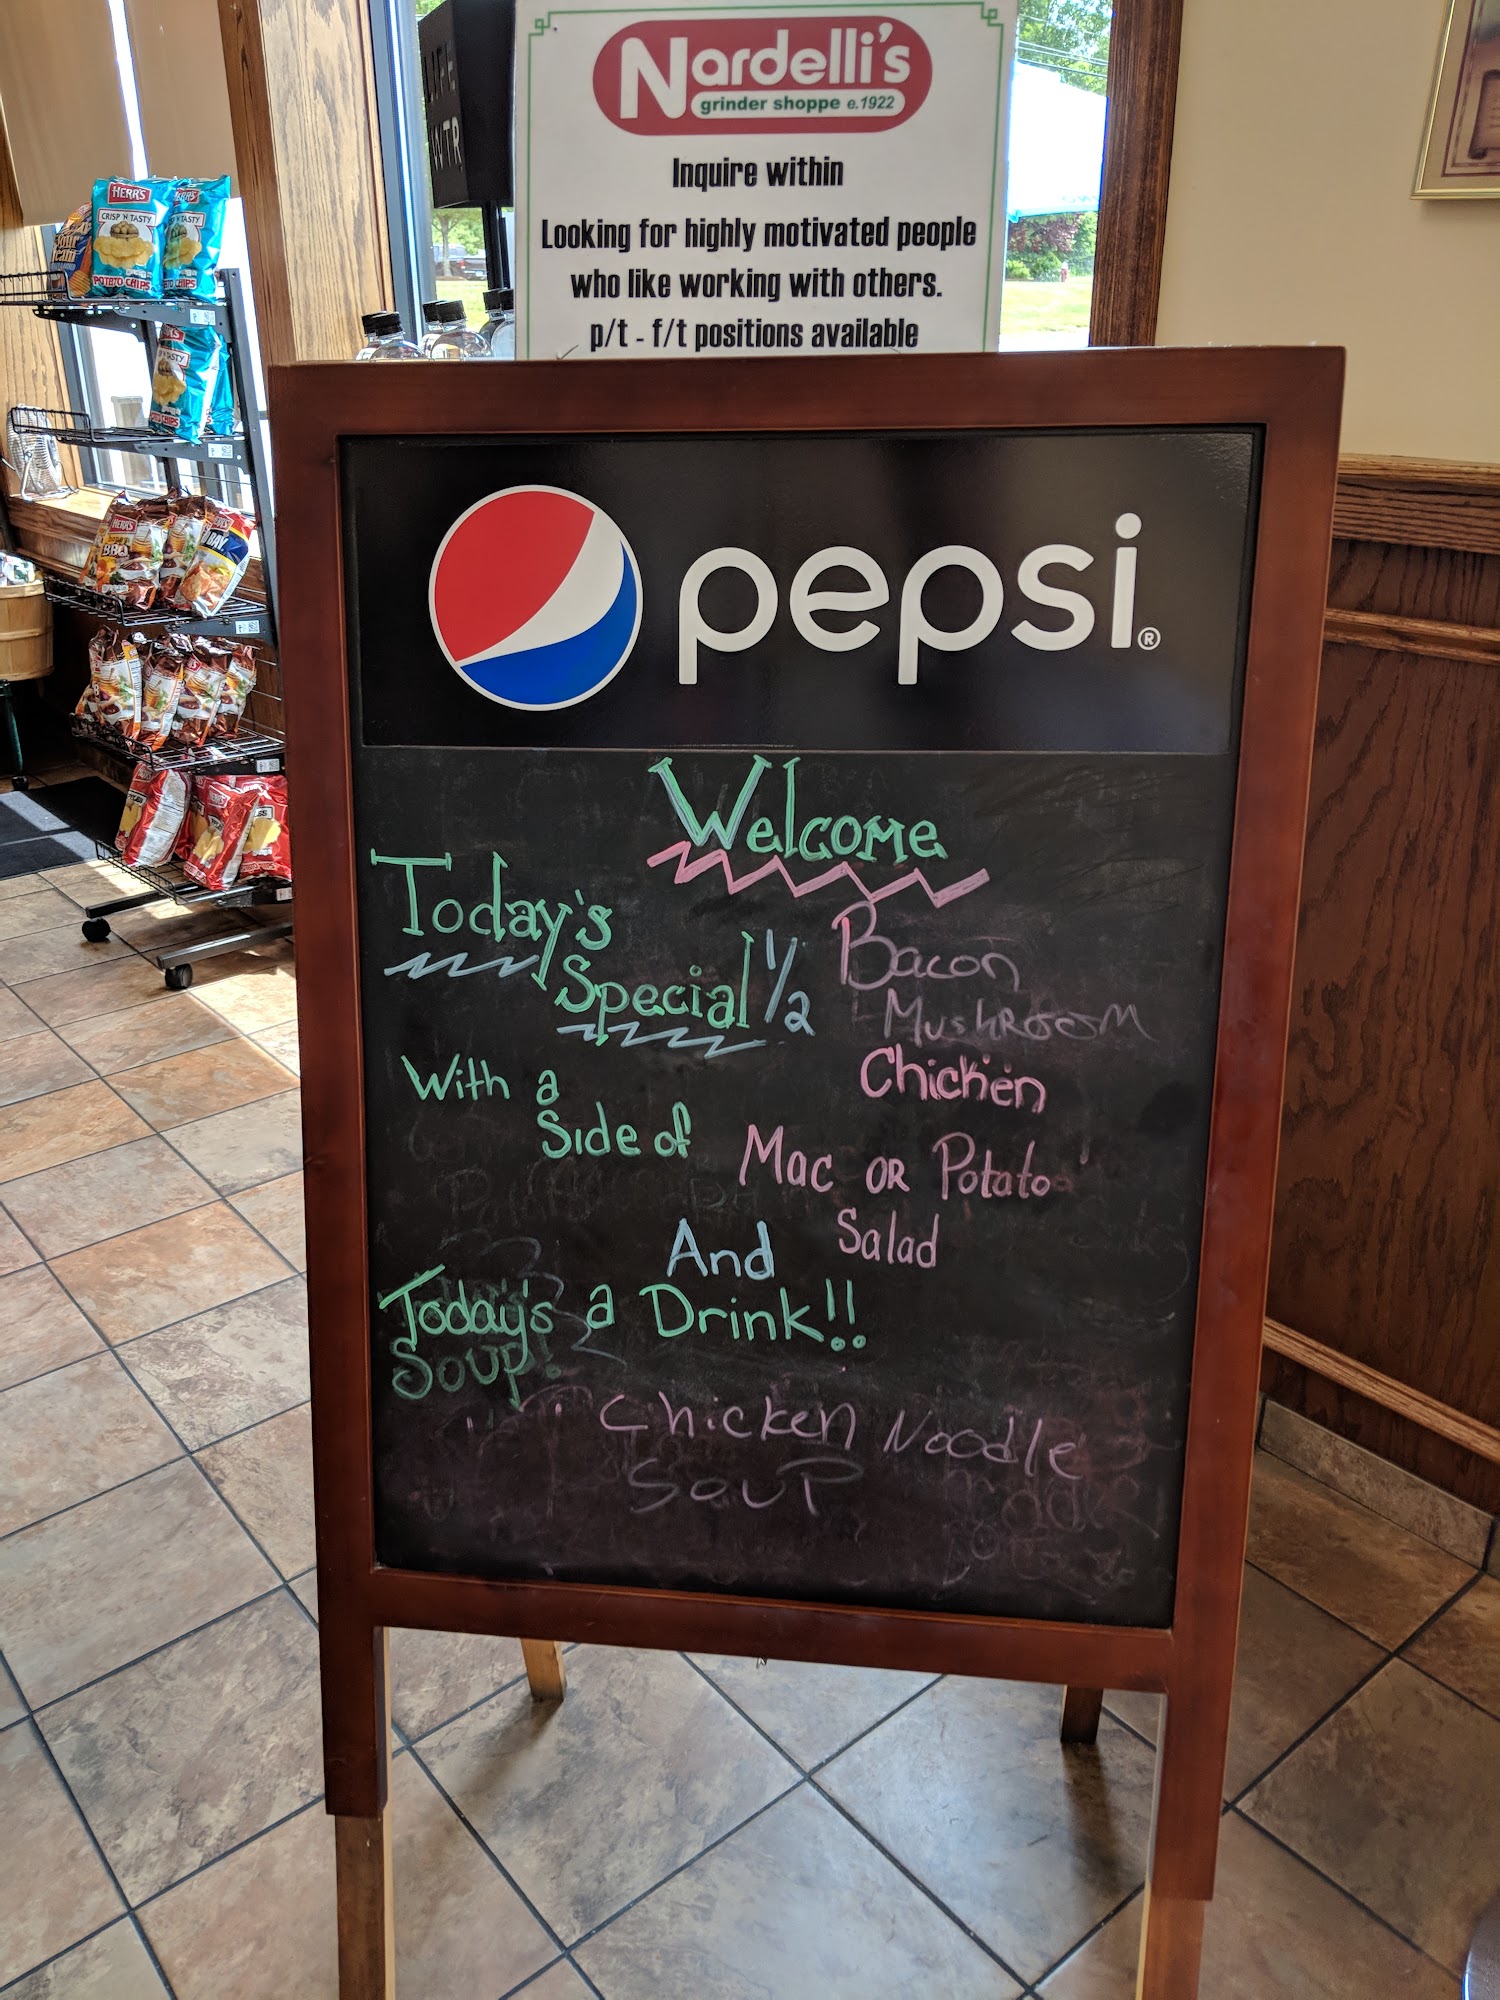 Nardelli's
grinder shoppe e.1922
Inquire within
Looking for highly motivated people
who like working with others.
p/t - f/t positions available
LIFE
WTR
HERR'S
CRISP 'N TASTY
POTATO CHIPS
HERR'S
BBQ
pepsi®
Welcome
Today's
Special 1/2
Bacon
Mushroom
Chicken
With a
Side of
Mac or Potato
Salad
And
a Drink!!
Today's
Soup!
Chicken Noodle
Soup